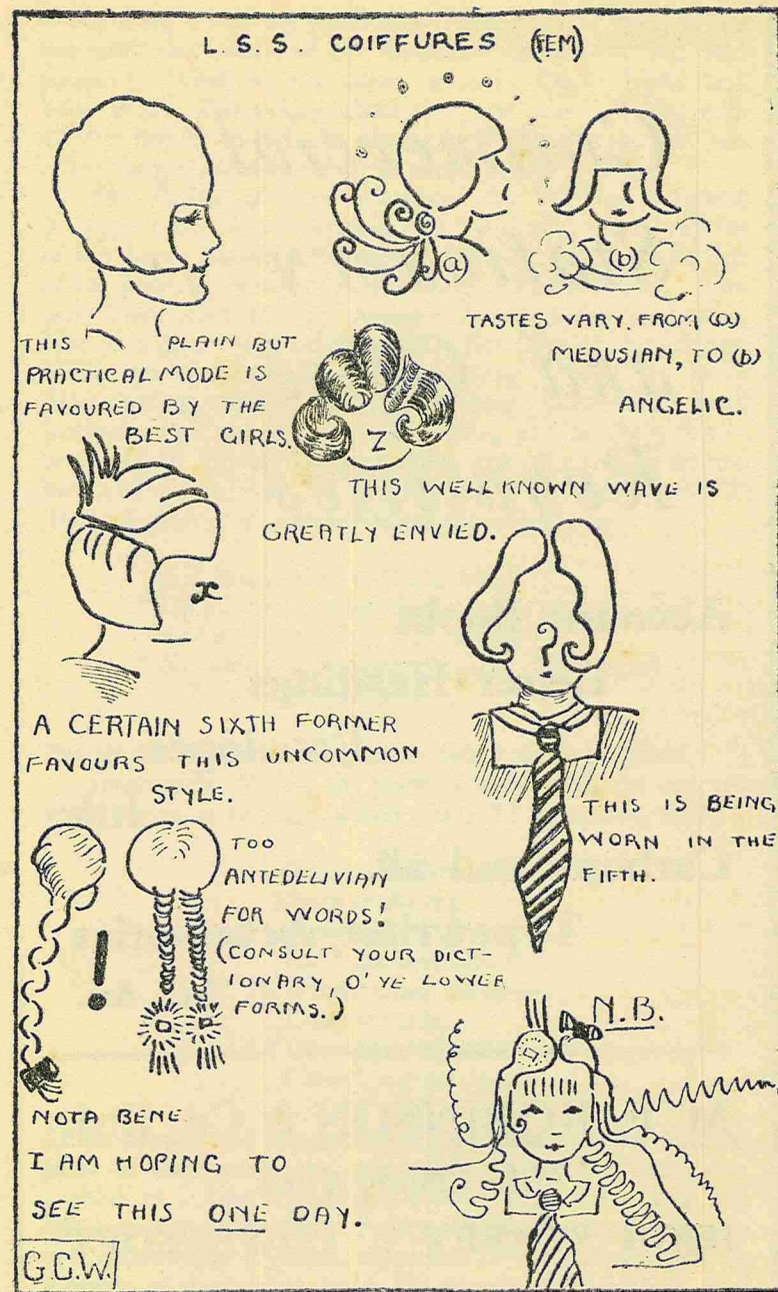 L. S. S. COIFFURES (FEM)
(a)
(b)
THIS PLAIN BUT
PRACTICAL MODE IS
FAVOURED BY THE
BEST GIRLS.
TASTES VARY. FROM (a)
MEDUSIAN, TO (b)
ANGELIC.
Z
THIS WELL KNOWN WAVE IS
GREATLY ENVIED.
x
?
A CERTAIN SIXTH FORMER
FAVOURS THIS UNCOMMON
STYLE.
THIS IS BEING
WORN IN THE
FIFTH.
!
TOO
ANTEDELIVIAN
FOR WORDS!
(CONSULT YOUR DICT-
IONARY, O' YE LOWER
FORMS.)
N.B.
NOTA BENE
I AM HOPING TO
SEE THIS ONE DAY.
G.C.W.